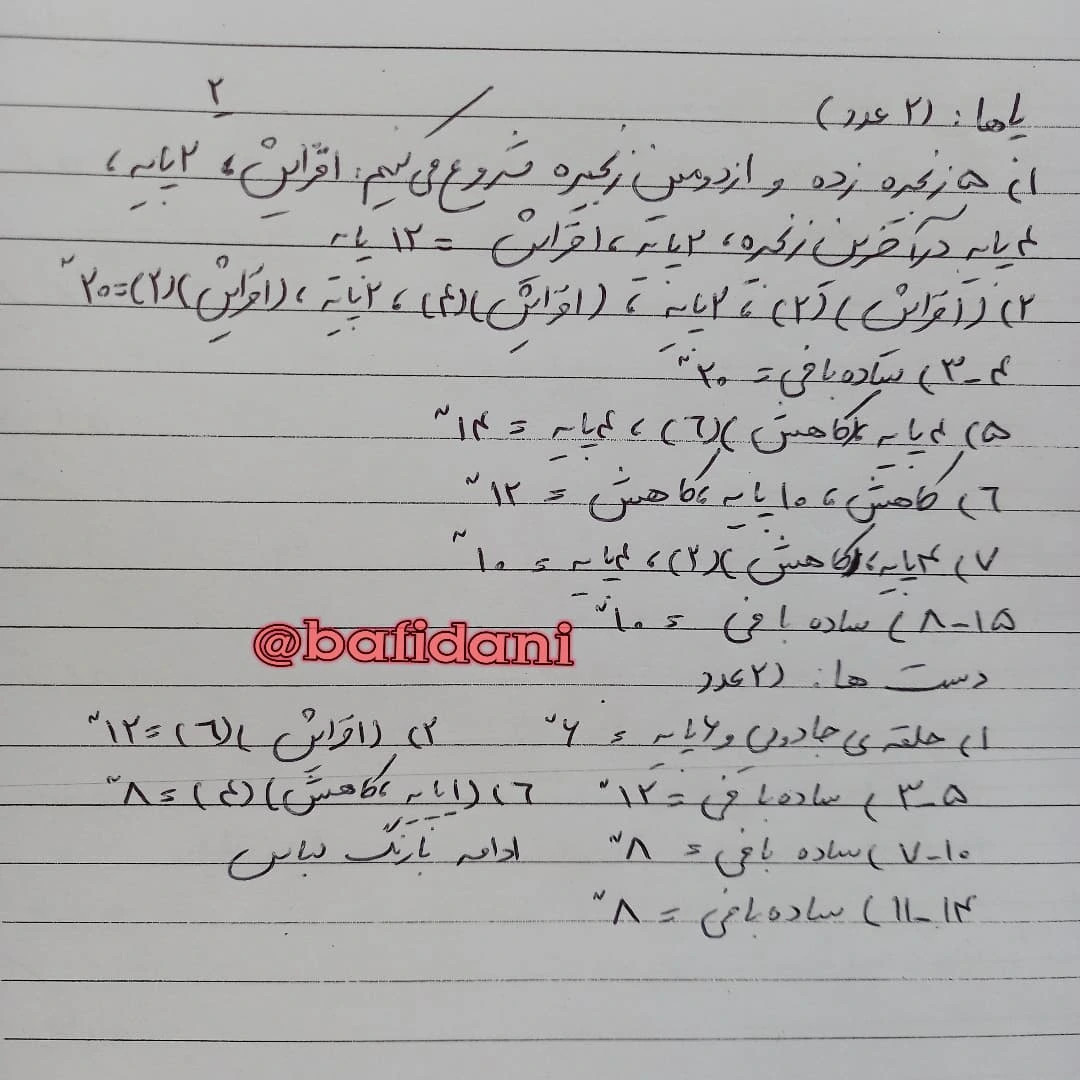 ۲
پاها: (۲ عدد)
۱) ۵ زنجیره زده و از دومین زنجیره شروع می کنیم. افزایش، ۲ پایه،
۴ پایه در آخرین زنجیره، ۲ پایه، افزایش = ۱۲ پایه
۲) (افزایش)(۲)، ۲ پایه، (افزایش)(۴)، ۲ پایه، (افزایش)(۲)=۲۰
۳-۴) ساده بافی = ۲۰
۵) ۴ پایه، (کاهش)(۶)، ۴ پایه = ۱۴
۶) کاهش، ۱۰ پایه، کاهش = ۱۲
۷) ۴ پایه، (کاهش)(۲)، ۴ پایه = ۱۰
۸-۱۵) ساده بافی = ۱۰
@bafidani
دست ها: (۲ عدد
۱) حلقه ی جادویی و ۶ پایه = ۶ ۲) (افزایش)(۶)=۱۲
۳-۵) ساده بافی = ۱۲ ۶) (۱ پایه، کاهش)(۴) = ۸
۷-۱۰) ساده بافی = ۸ ادامه با رنگ لباس
۱۱-۱۴) ساده بافی = ۸